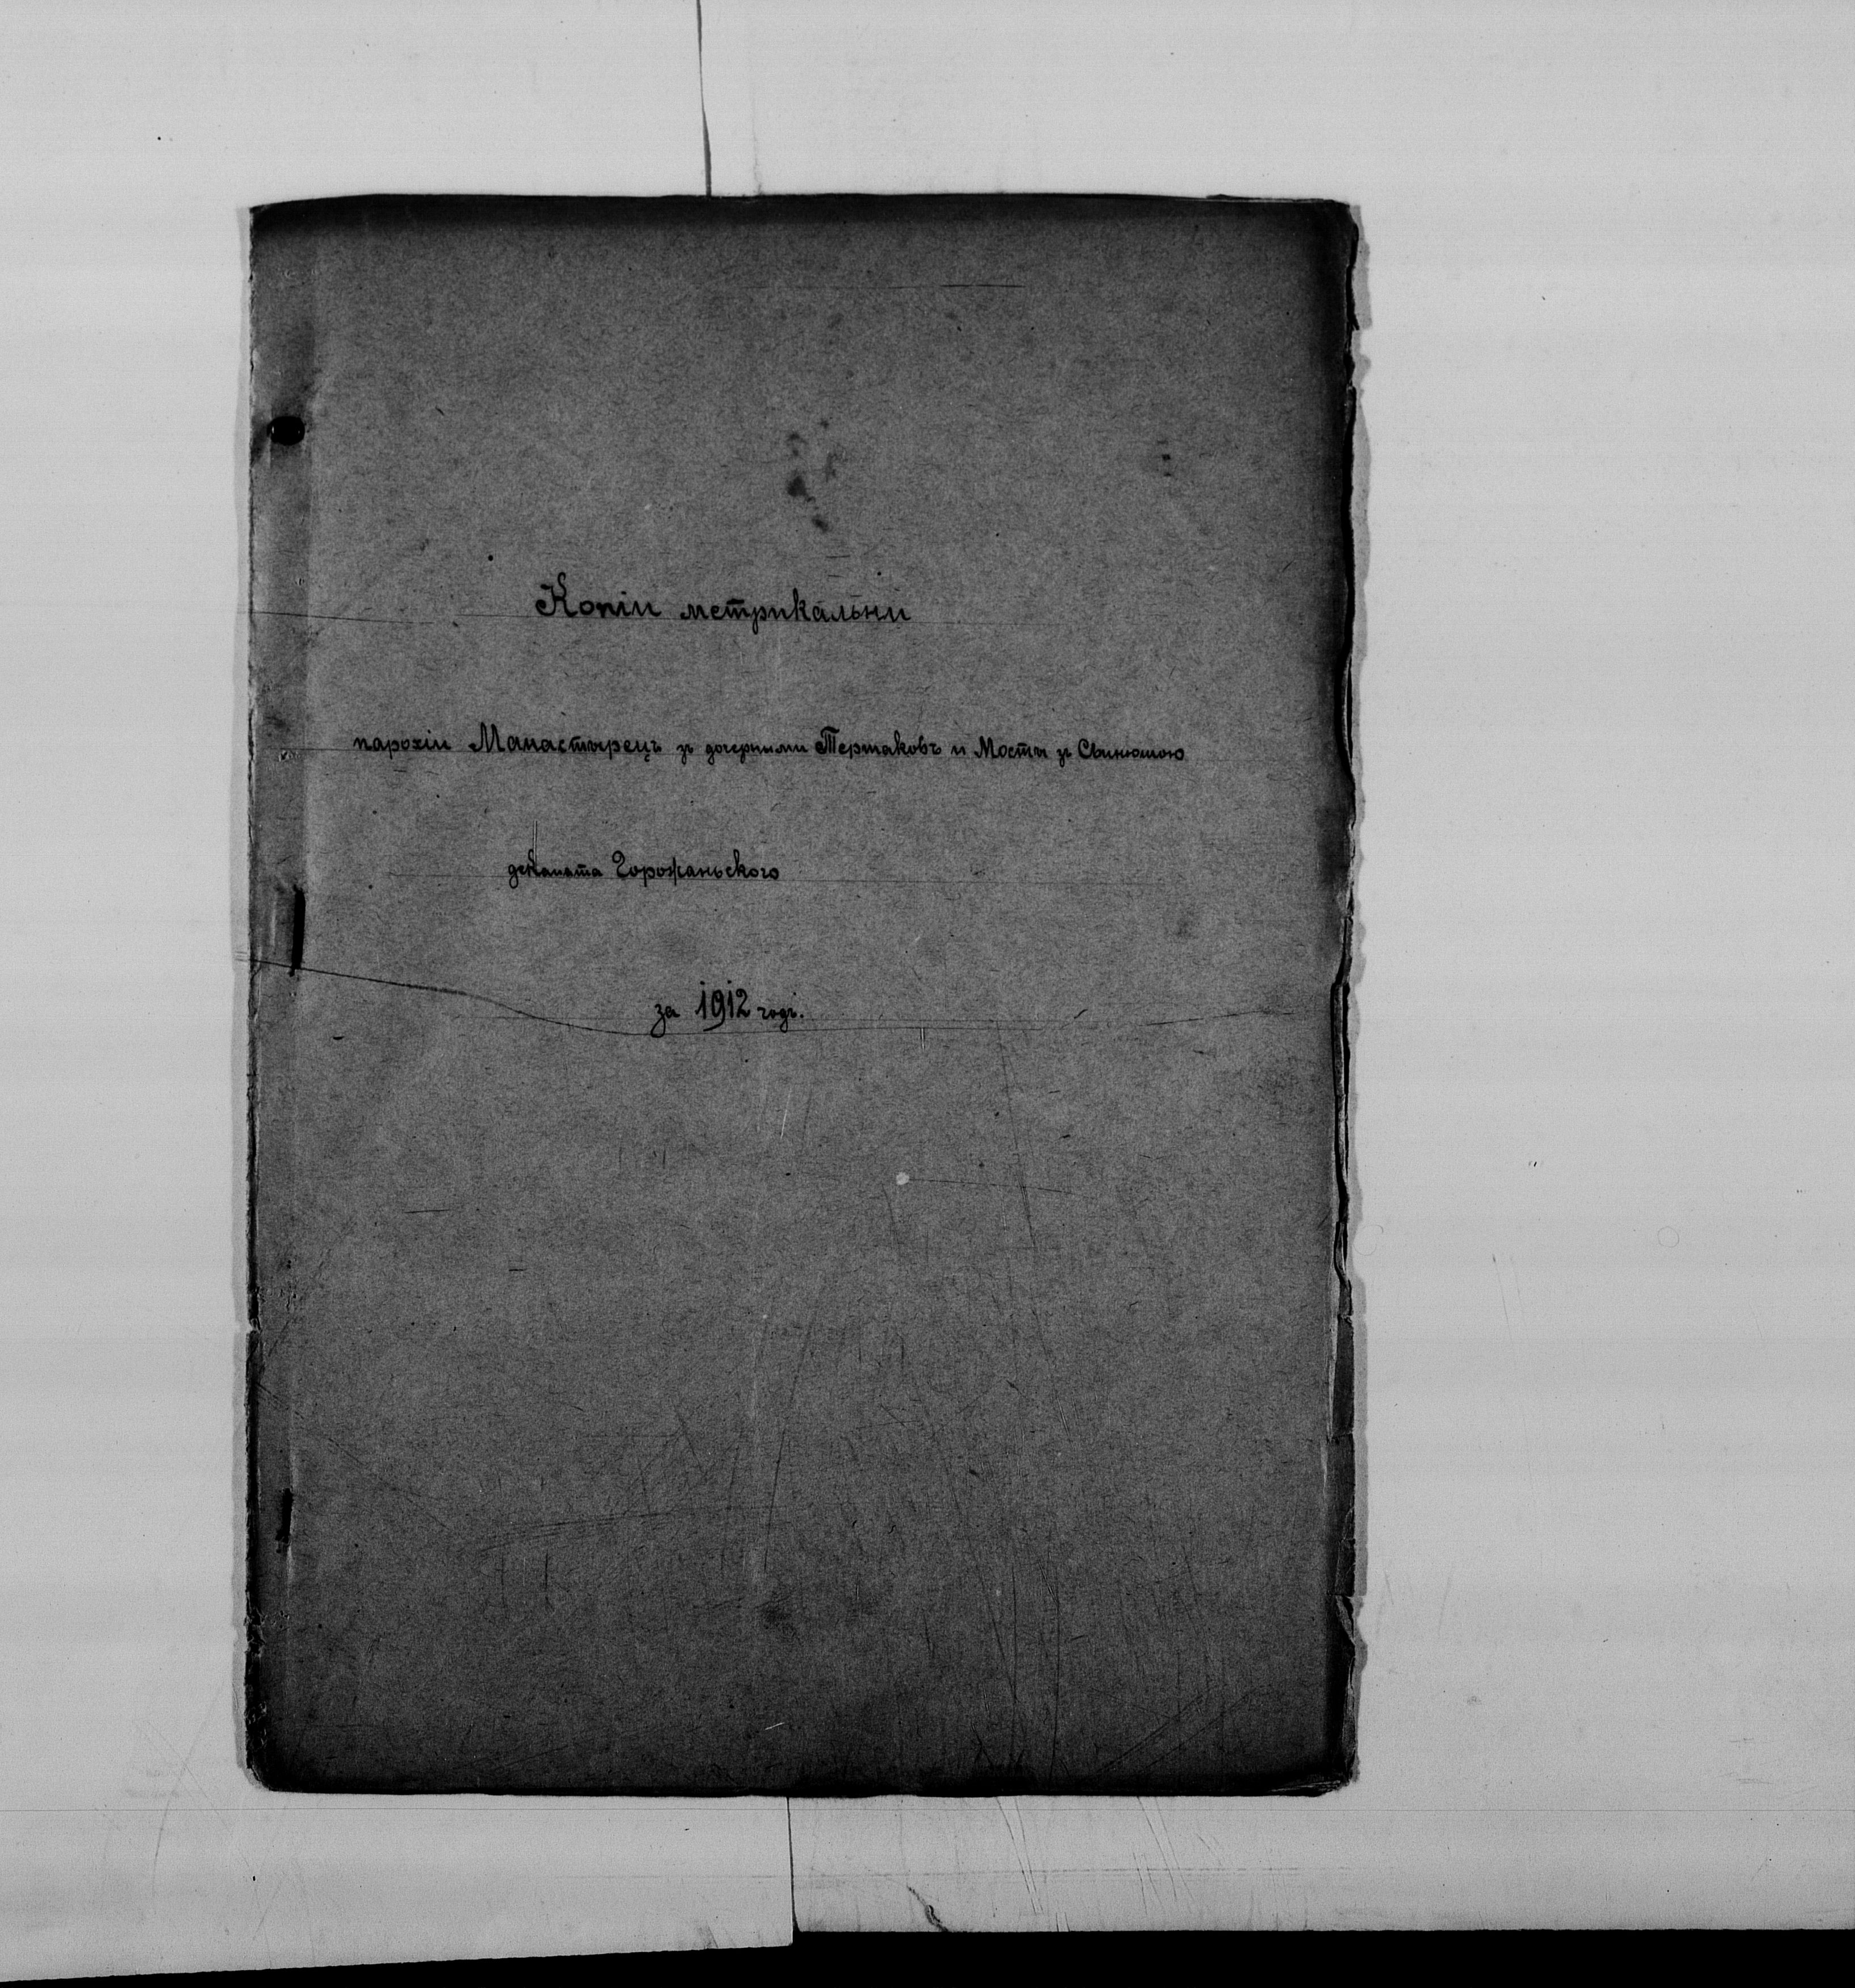 Копіи метрикальни
парохіи Манастырець зъ дочерними Тершаковъ и Мосты зъ Свинюшою
деканата Горожаньского
за 1912 годъ.